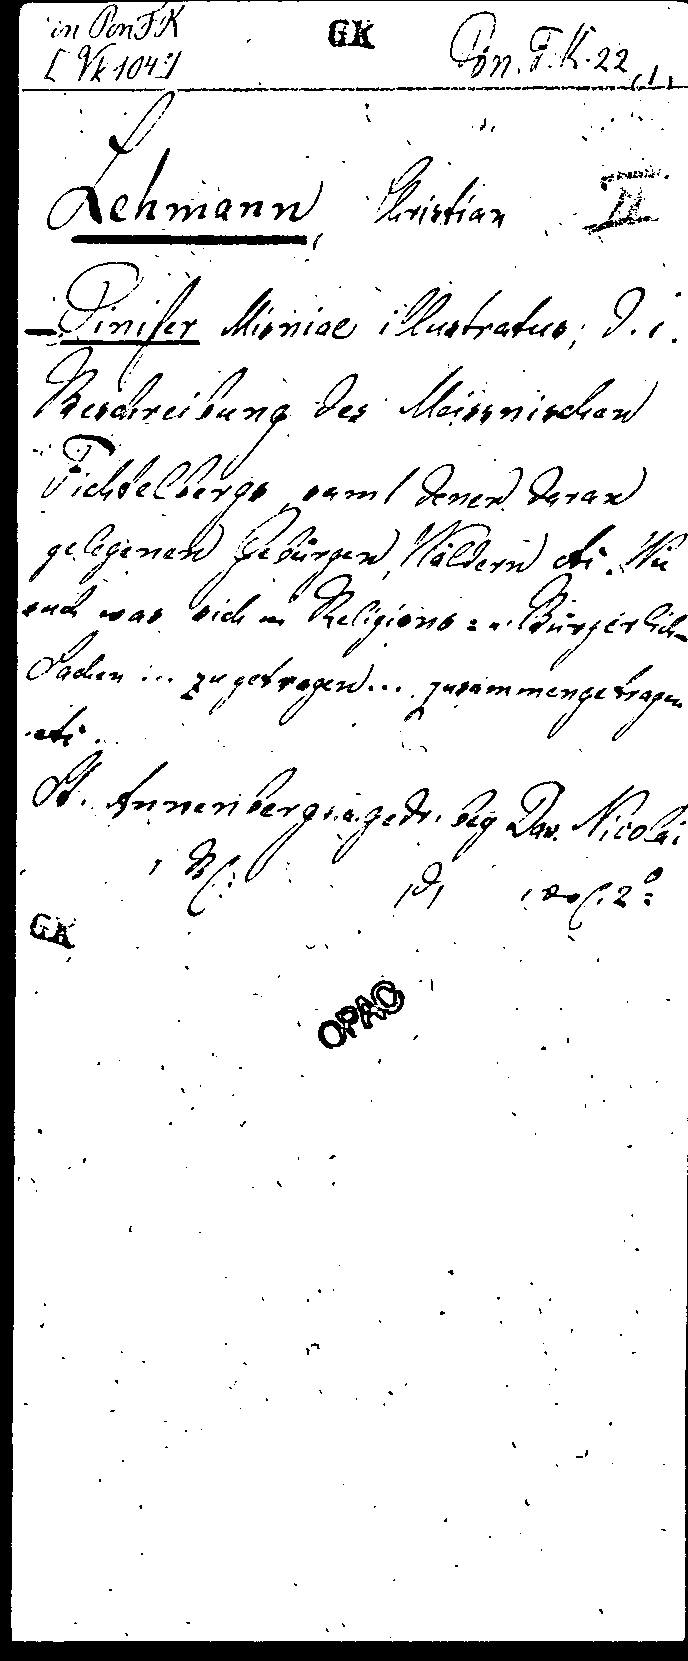 in Pon F K
[Vk 104:]
GK
Pon. F. K. 22
Lehmann, Christian II
- Pinifer Misniae illustratus, d. i.
Beschreibung des Meissnischen
Fichtelbergs, samt denen daran
gelegenen Gebürgen, Wäldern etc. Wie
auch was sich in Religions= u. Bürgerlich-
Sachen ... zugetragen ... zusammengetragen
etc.
St. Annenberg: gedr. bey Dav. Nicolai
2°
GK
OPAC